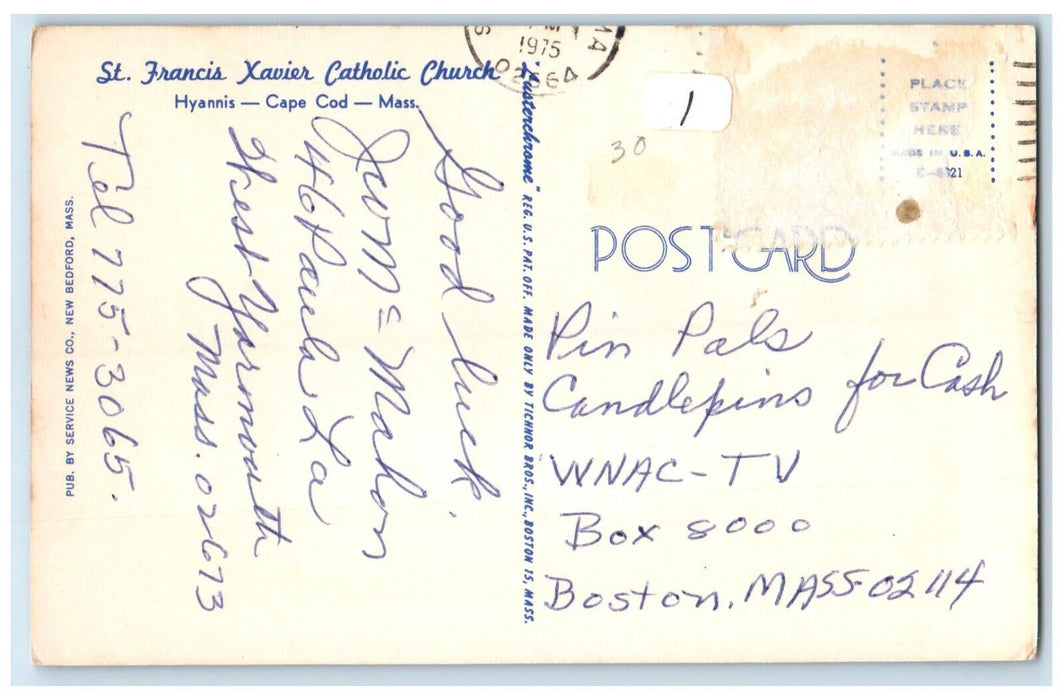 St. Francis Xavier Catholic Church
Hyannis — Cape Cod — Mass.
Good luck.
McMahon
46 Paula La
West Yarmouth
Mass. 02673
Tel 775-3065.
PUB. BY SERVICE NEWS CO., NEW BEDFORD, MASS.
"Lusterchrome" REG. U.S. PAT. OFF. MADE ONLY BY TICHNOR BROS., INC., BOSTON 15, MASS.
MA
1975
1
30
PLACE
STAMP
HERE
MADE IN U.S.A.
POST CARD
Pin Pals
Candlepins for Cash
WNAC-TV
Box 8000
Boston, MASS 02114